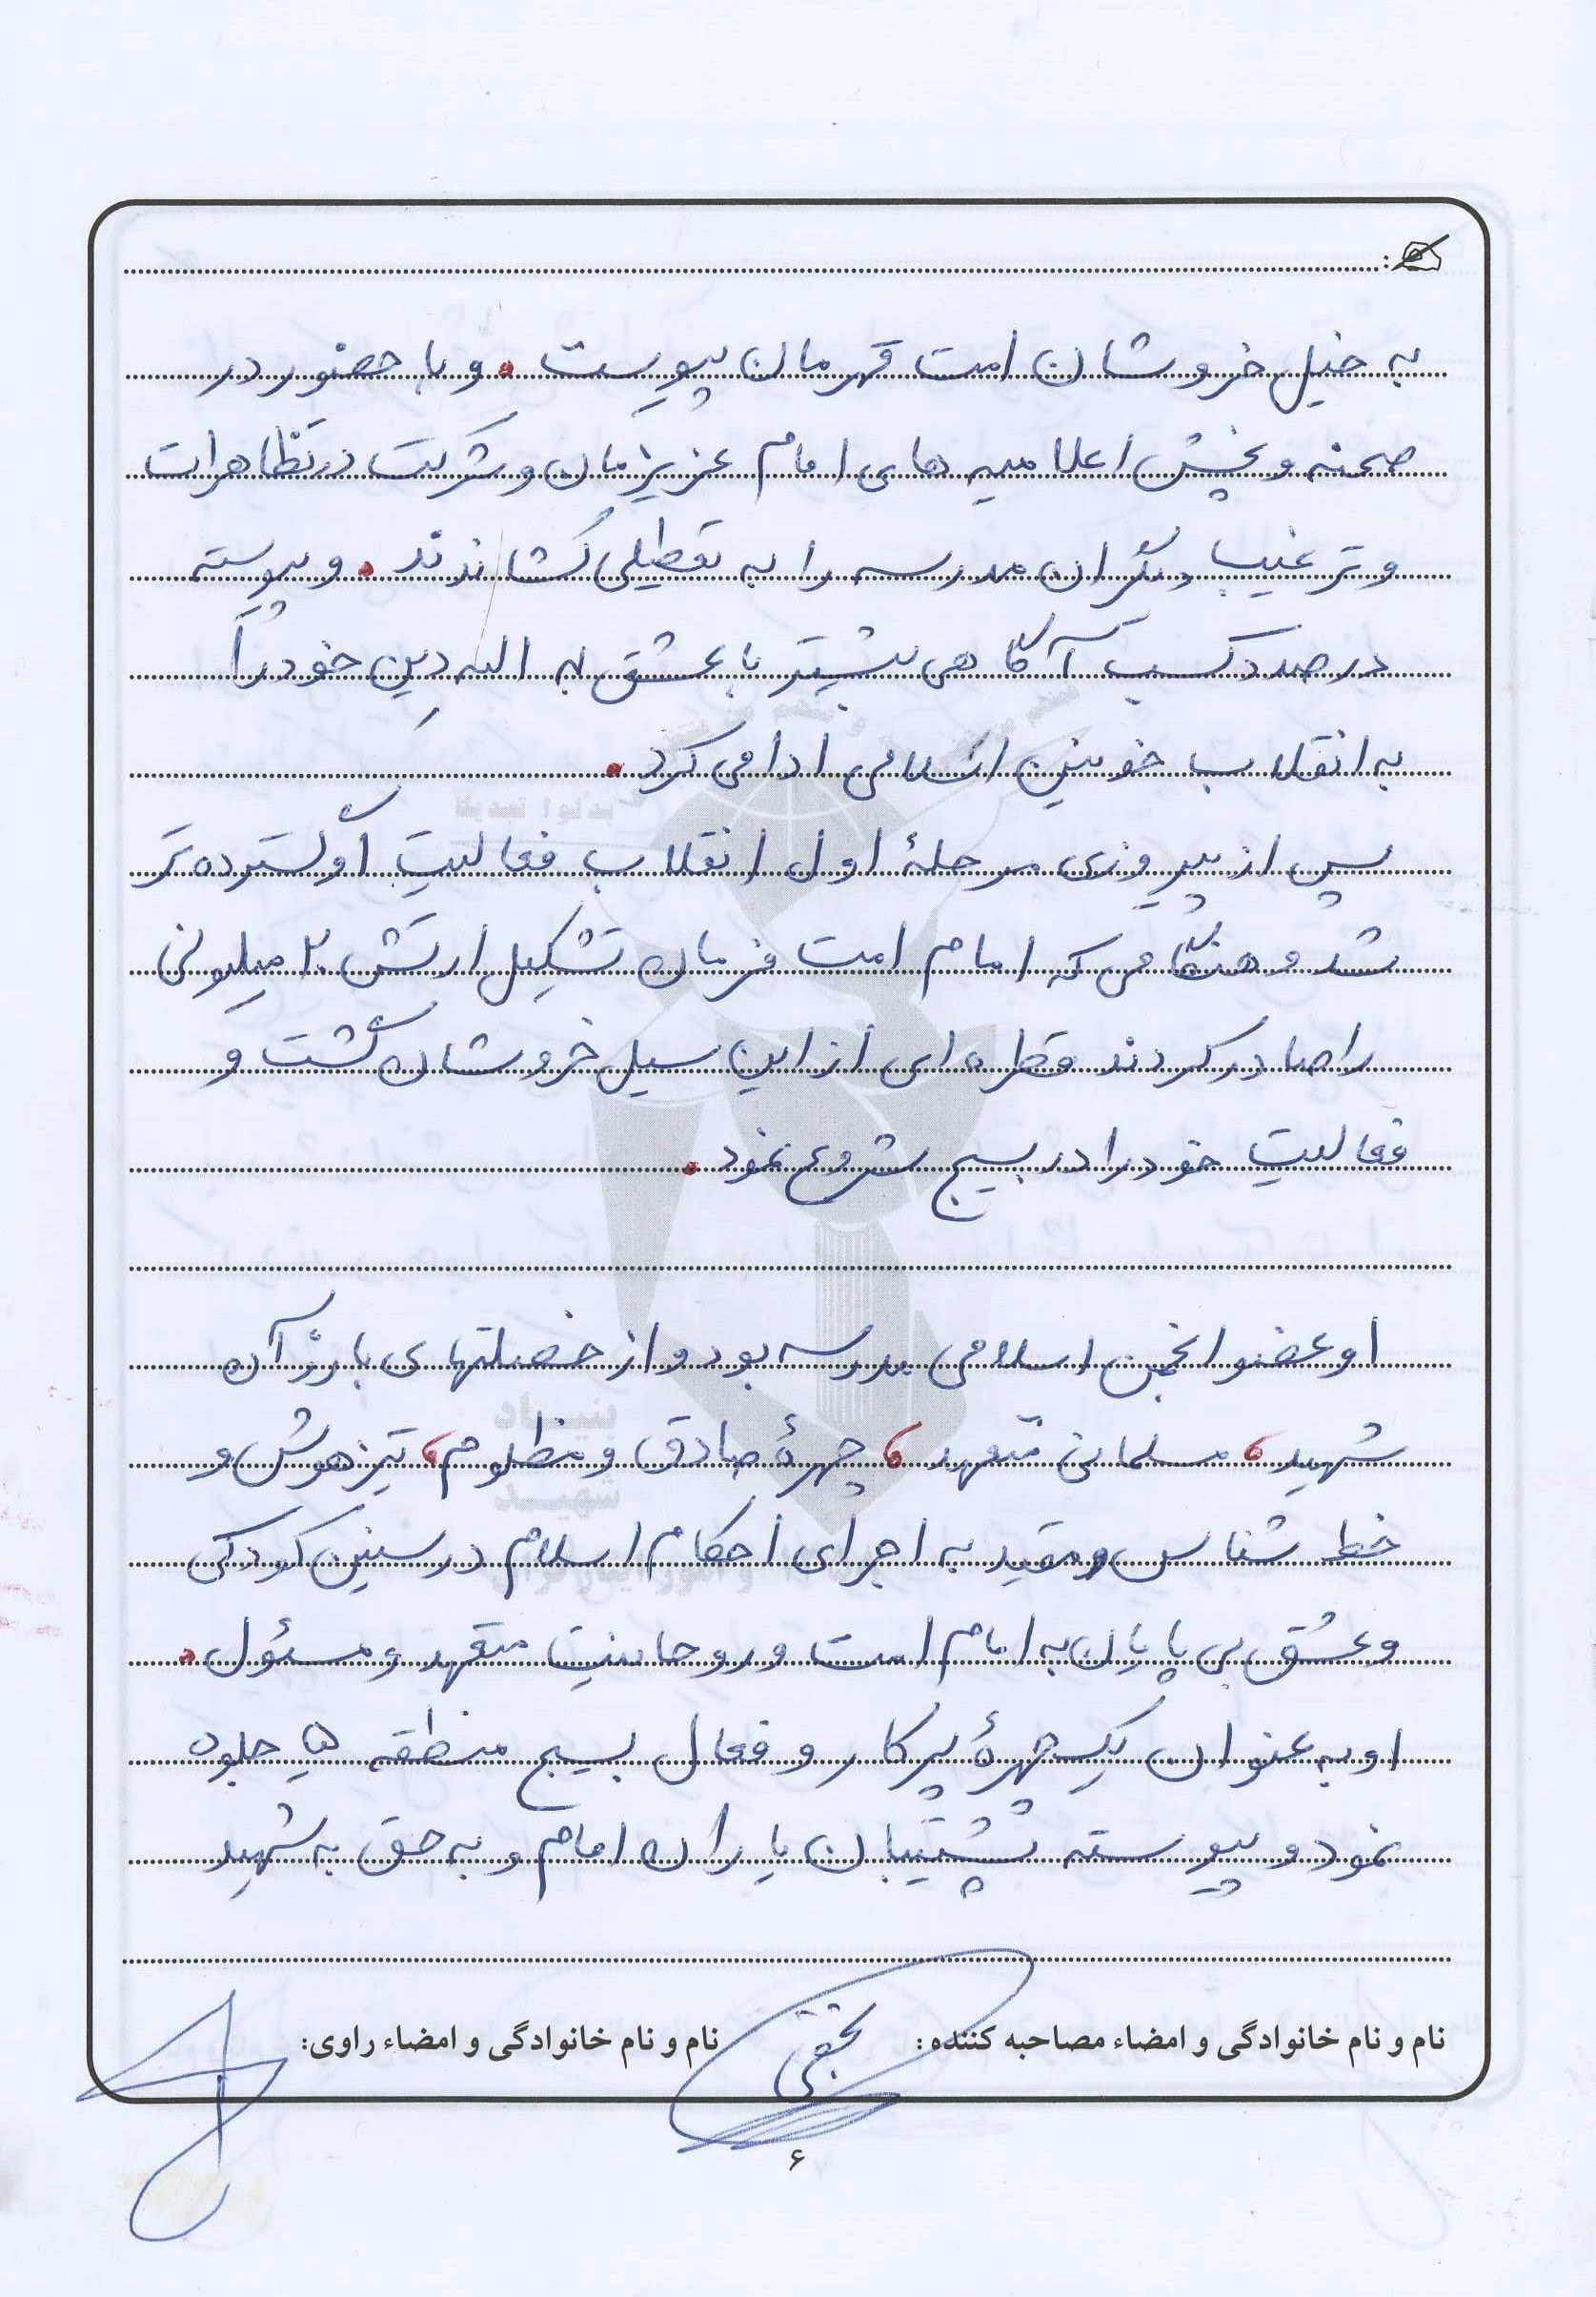 به خیل خروشان امت قهرمان پیوست. و با حضور در
صحنه و پخش اعلامیه های امام عزیزمان و شرکت در تظاهرات
و ترغیب دیگران مدرسه را به تعطیلی کشاندند. و پیوسته
درصدد کسب آگاهی بیشتر با عشق به الله دِینِ خود را
به انقلاب خونین اسلامی ادا می کرد.
پس از پیروزی مرحلهٔ اول انقلاب فعالیتِ او گسترده تر
شد و هنگامی که امام امت فرمان تشکیل ارتش ۲۰ میلیونی
را صادر کردند قطره ای از این سیل خروشان گشت و
فعالیتِ خود را در بسیج شروع نمود.
او عضو انجمن اسلامی مدرسه بود و از خصلتهای بارز آن
شهید، مسلمانی متعهد، چهرهٔ صادق و مظلوم، تیزهوش و
خط شناس و مقید به اجرای احکام اسلام در سنین کودکی
و عشق بی پایان به امام امت و روحانیت متعهد و مسئول.
او به عنوان یک چهرهٔ پرکار و فعال بسیج منطقه ۵ جلوه
نمود و پیوسته پشتیبان یاران امام و به حق به شهید
نام و نام خانوادگی و امضاء مصاحبه کننده: نام و نام خانوادگی و امضاء راوی:
۶
بنیاد
شهید